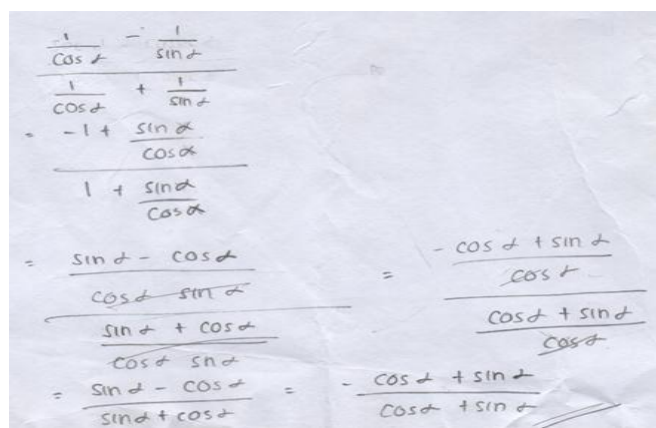 1/cos α - 1/sin α
1/cos α + 1/sin α
= -1 + sin α/cos α
1 + sin α/cos α
= sin α - cos α
cos α sin α
sin α + cos α
cos α sn α
= sin α - cos α
sin α + cos α
= - cos α + sin α
cos α
cos α + sin α
cos α
= - cos α + sin α
cos α + sin α